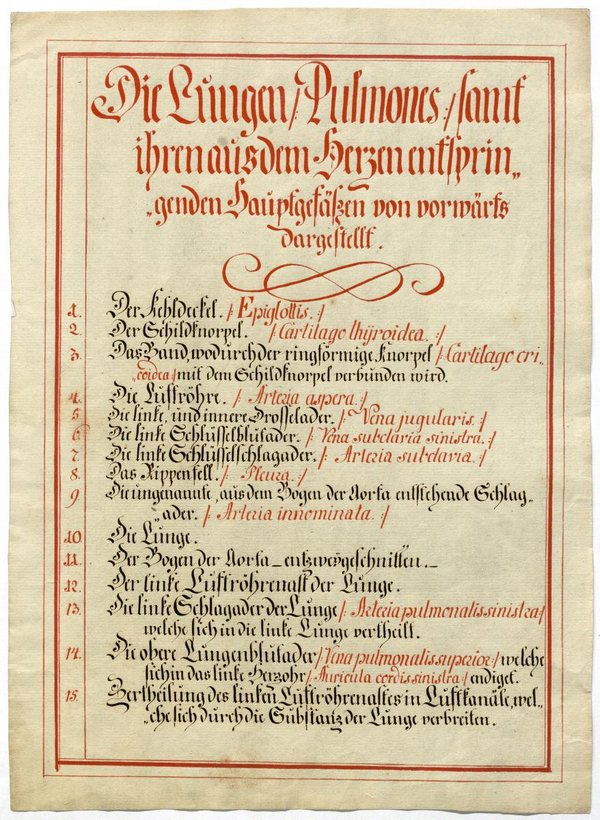 Die Lungen /: Pulmones :/ samt
ihren aus dem Herzen entsprin„
„genden Hauptgefäßen von vorwärts
dargestellt.
1. Der Kehldeckel. /: Epiglottis. :/
2. Der Schildknorpel. /: Cartilago thÿroidea. :/
3. Das Band, wodurch der ringförmige Knorpel /: Cartilago cri„
„coidea :/ mit dem Schildknorpel verbunden wird.
4. Die Luftröhre. /: Arteria aspera. :/
5. Die linke, und innere Drosselader. /: Vena jugularis. :/
6. Die linke Schlüsselblutader. /: Vena subclaria sinistra. :/
7. Die linke Schlüsselschlagader. /: Arteria subclaria. :/
8. Das Rippenfell. /: Pleura. :/
9. Die ungenannte, aus dem Bogen der Aorta entstehende Schlag„
„ader. /: Arteria innominata. :/
10. Die Lunge.
11. Der Bogen der Aorta _ entzwergeschnitten. _
12. Der linke Luftröhrenast der Lunge.
13. Die linke Schlagader der Lunge /: Arteria pulmonalis sinistra :/
welche sich in die linke Lunge vertheilt.
14. Die obere Lungenblutader /: Vena pulmonalis superior :/ welche
sich in das linke Herzohr /: Auricula cordis sinistra :/ endiget.
15. Zertheilung des linken Luftröhrenastes in Luftkanäle, wel„
„che sich durch die Substanz der Lunge verbreiten.